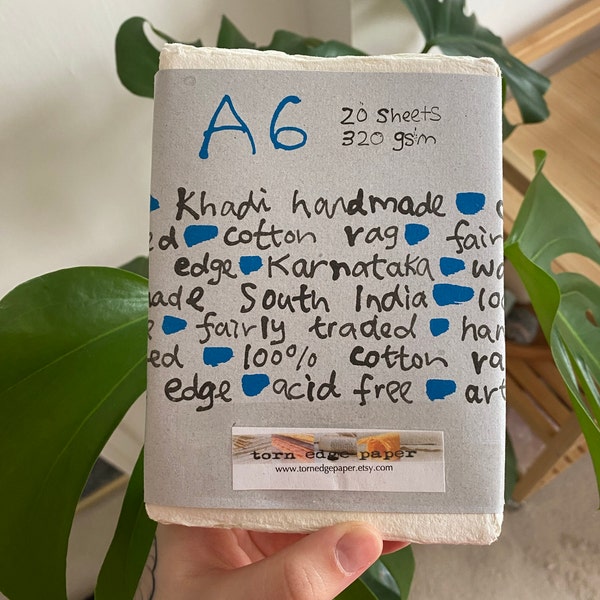 A6
20 sheets
320 gsm
Khadi handmade
ed cotton rag fair
edge Karnataka wa
made South India 100
fairly traded han
ed 100% cotton ra
edge acid free art
torn edge paper
www.tornedgepaper.etsy.com